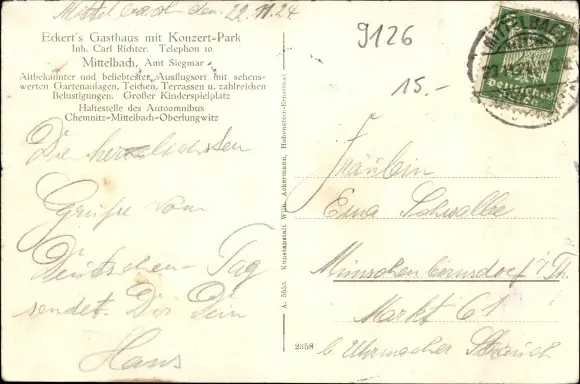 Mittelbach den 22.11.24
Eckert's Gasthaus mit Konzert-Park
Inh. Carl Richter. Telephon 10
Mittelbach, Amt Siegmar
Altbekannter und beliebtester Ausflugsort mit sehens-
werten Gartenanlagen, Teichen, Terrassen u. zahlreichen
Belustigungen. Großer Kinderspielplatz
Haltestelle des Autoomnibus
Chemnitz-Mittelbach-Oberlungwitz
Die herzlichsten
Grüße vom
Deutschen-Tag
sendet Dir Dein
Hans
A. 5653. Kunstanstalt Wilh. Ackermann, Hohenstein-Ernstthal
2358
9126
15.-
MITTELBACH
Fräulein
Erna Schwalbe
Münschenbernsdorf i/Th.
Markt 61
b. Uhrmacher